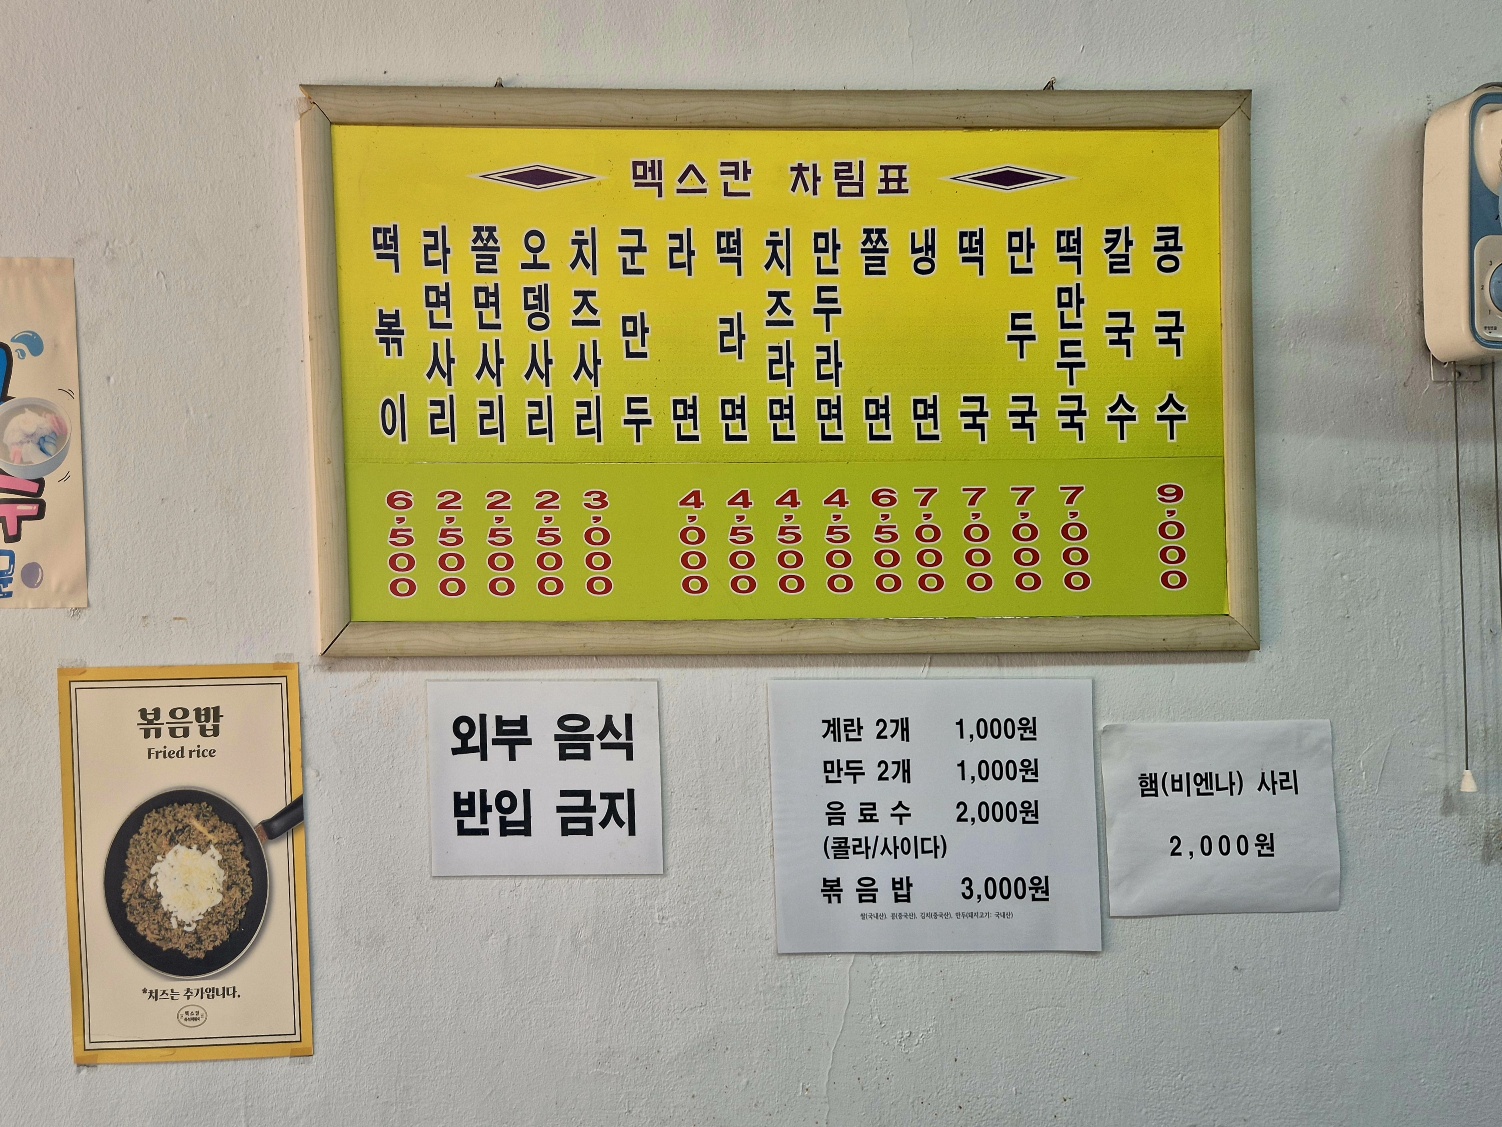 멕스칸 차림표
떡볶이 6,500
라면사리 2,500
쫄면사리 2,500
오뎅사리 2,500
치즈사리 3,000
군만두
라면 4,000
떡라면 4,500
치즈라면 4,500
만두라면 4,500
쫄면 6,500
냉면 7,000
떡국 7,000
만두국 7,000
떡만두국 7,000
칼국수
콩국수 9,000
볶음밥
Fried rice
*치즈는 추가입니다.
외부 음식
반입 금지
계란 2개 1,000원
만두 2개 1,000원
음료수 2,000원
(콜라/사이다)
볶음밥 3,000원
쌀(국내산), 콩(중국산), 김치(중국산), 만두(돼지고기: 국내산)
햄(비엔나) 사리
2,000원